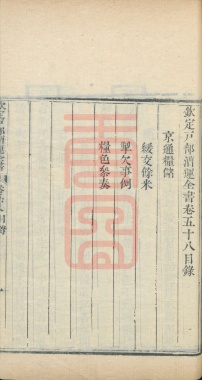 欽定戶部漕運全書卷五十八目錄
京通糧儲
緩交餘米
掣欠事例
糧色參奏